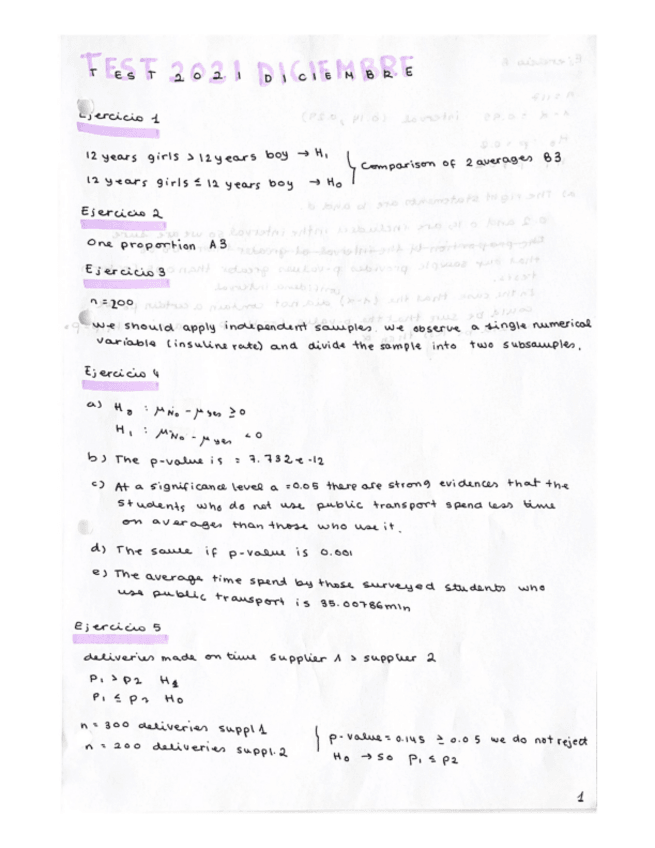 TEST 2021 DICIEMBRE
TEST 2021 DICIEMBRE
Ejercicio 1
12 years girls > 12 years boy → H1
12 years girls ≤ 12 years boy → H0
Comparison of 2 averages B3
Ejercicio 2
One proportion A3
Ejercicio 3
n=200
we should apply independent samples. we observe a single numerical
variable (insuline rate) and divide the sample into two subsamples.
Ejercicio 4
a) H0 : μNo - μyes ≥ 0
H1 : μNo - μyes < 0
b) The p-value is = 7.732e-12
c) At a significance level a =0.05 there are strong evidences that the
students who do not use public transport spend less time
on averages than those who use it.
d) The same if p-value is 0.001
e) The average time spend by those surveyed students who
use public transport is 35.00786min
Ejercicio 5
deliveries made on time supplier 1 > supplier 2
P1 > P2 H1
P1 ≤ P2 H0
n = 300 deliveries suppl 1
n = 200 deliveries suppl. 2
p-value = 0.145 ≥ 0.05 we do not reject
H0 → so P1 ≤ P2
1